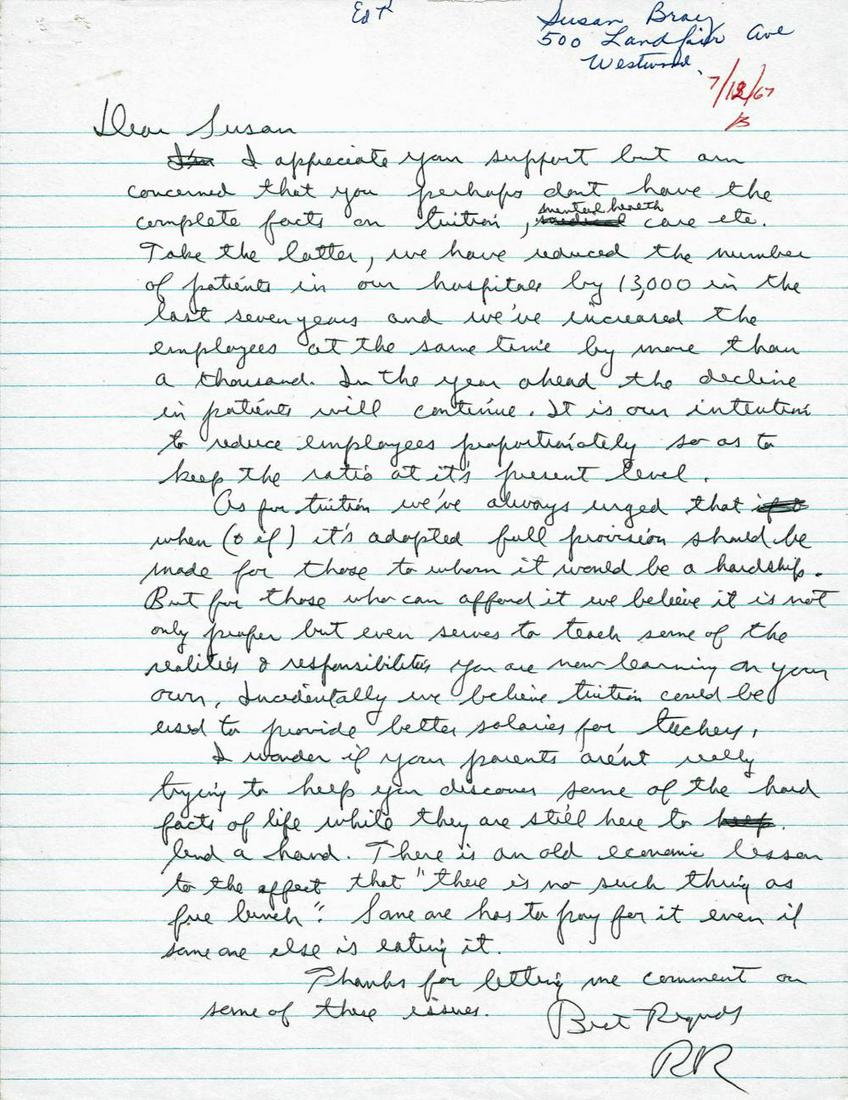 Ed R
Susan Bray
500 Landfair Ave
Westwood.
7/12/67
B
Dear Susan
I appreciate your support but am
concerned that you perhaps dont have the
complete facts on tuition, mental health care etc.
Take the latter, we have reduced the number
of patients in our hospitals by 13,000 in the
last seven years and we've increased the
employees at the same time by more than
a thousand. In the year ahead the decline
in patients will continue. It is our intention
to reduce employees proportionately so as to
keep the ratio at it's present level.
As for tuition we've always urged that
when (& if) it's adopted full provision should be
made for those to whom it would be a hardship.
But for those who can afford it we believe it is not
only proper but even serves to teach some of the
realities & responsibilities you are now learning on your
own. Incidentally we believe tuition could be
used to provide better salaries for teachers.
I wonder if your parents aren't really
trying to help you discover some of the hard
facts of life while they are still here to
lend a hand. There is an old economic lesson
to the affect that "there is no such thing as
free lunch". Some one has to pay for it even if
some one else is eating it.
Thanks for letting me comment on
some of these issues.
Best Regards
RR